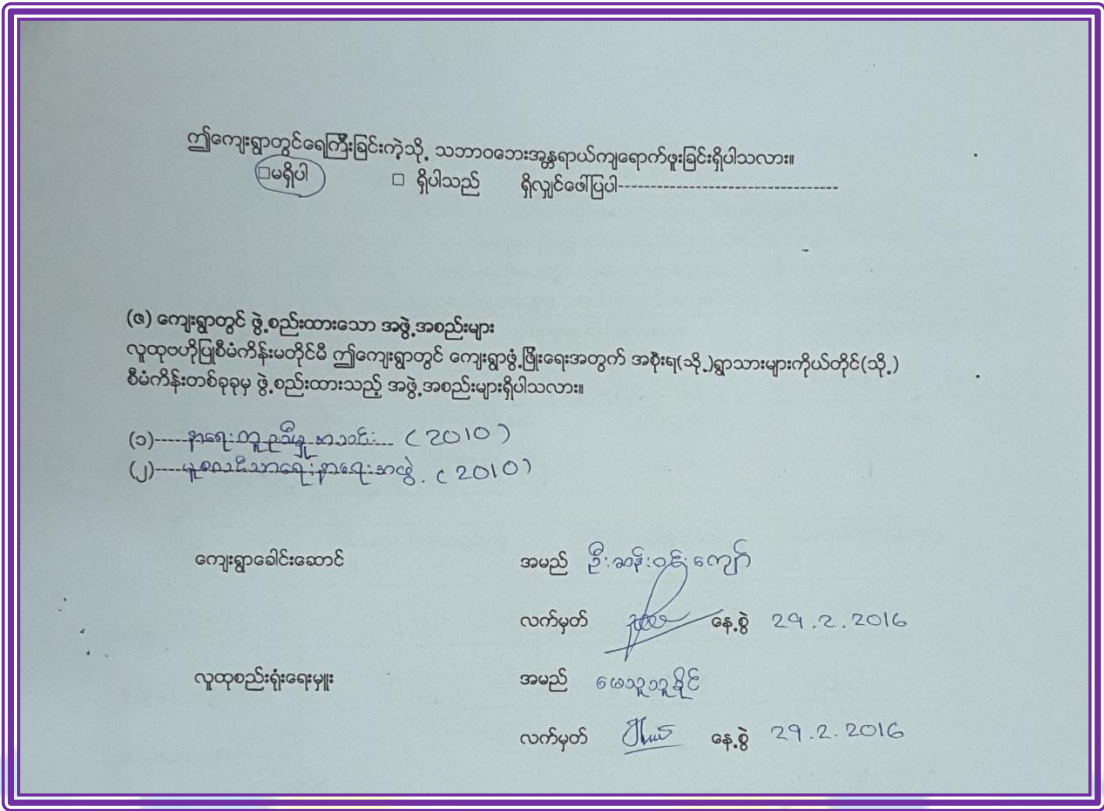 ဤကျေးရွာတွင်ရေကြီးခြင်းကဲ့သို့ သဘာဝဘေးအန္တရာယ်ကျရောက်ဖူးခြင်းရှိပါသလား။
□မရှိပါ □ ရှိပါသည် ရှိလျှင်ဖေါ်ပြပါ----------------------------------
(ဇ) ကျေးရွာတွင် ဖွဲ့စည်းထားသော အဖွဲ့အစည်းများ
လူထုဗဟိုပြုစီမံကိန်းမတိုင်မီ ဤကျေးရွာတွင် ကျေးရွာဖွံ့ဖြိုးရေးအတွက် အစိုးရ(သို့)ရွာသားများကိုယ်တိုင်(သို့)
စီမံကိန်းတစ်ခုခုမှ ဖွဲ့စည်းထားသည့် အဖွဲ့အစည်းများရှိပါသလား။
(၁)-----နာရေးကူညီမှုအသင်း--- (2010)
(၂)-----သာရေးနာရေးအဖွဲ့. (2010)
ကျေးရွာခေါင်းဆောင် အမည် ဦးဆန်းဝင်းကျော်
လက်မှတ် နေ့စွဲ 29.2.2016
လူထုစည်းရုံးရေးမှူး အမည် မေသူသူခိုင်
လက်မှတ် နေ့စွဲ 29.2.2016